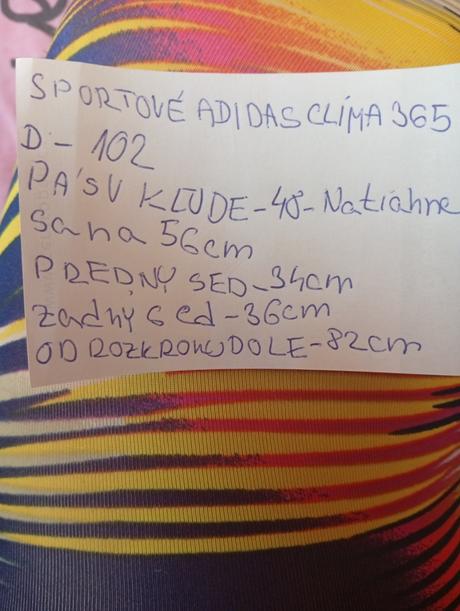 SPORTOVÉ ADIDAS CLÍMA 365
D - 102
PÁS V KĽUDE - 48 - Natiahne
Sa na 56cm
PREDNÝ SED - 34cm
zadný sed - 36cm
OD ROZKROKU DOLE - 82cm